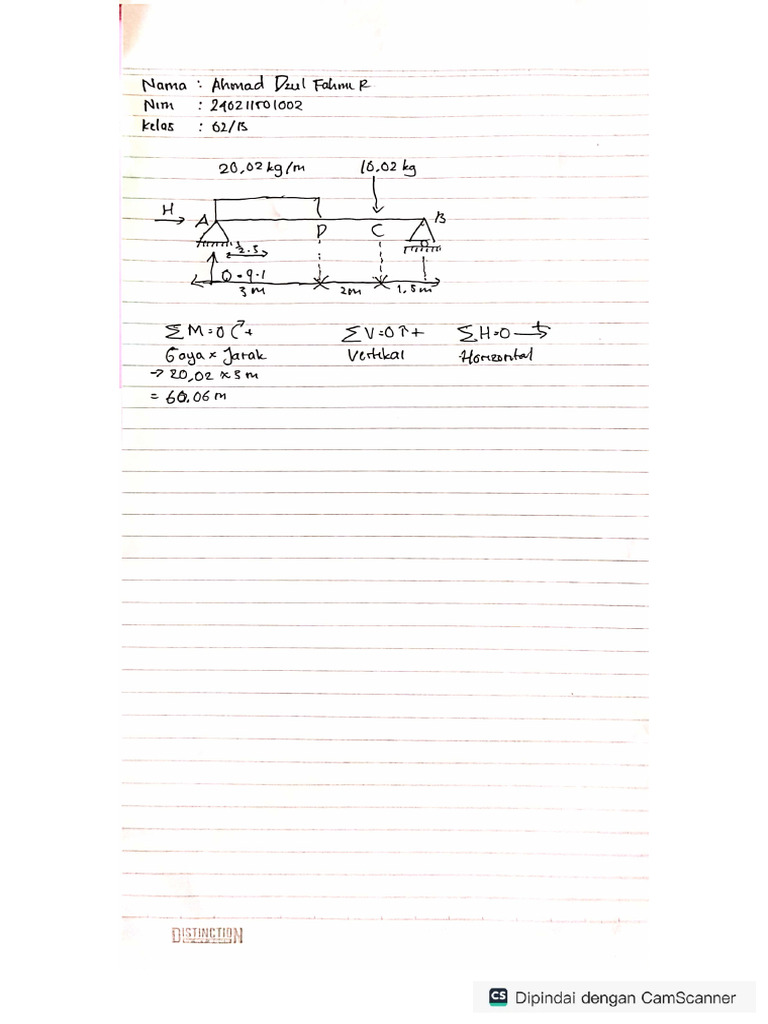 Nama : Ahmad Dzul Fahmi R
Nim : 240211501002
Kelas : 02/B
20,02 kg/m 10,02 kg
H A D C B
2.5
Q = q.l
3 m 2m 1,5m
ΣM=0 ↷+ ΣV=0↑+ ΣH=0 →+
Gaya × Jarak Vertikal Horizontal
→ 20,02 × 3 m
= 60,06 m
DISTINCTION
CS Dipindai dengan CamScanner